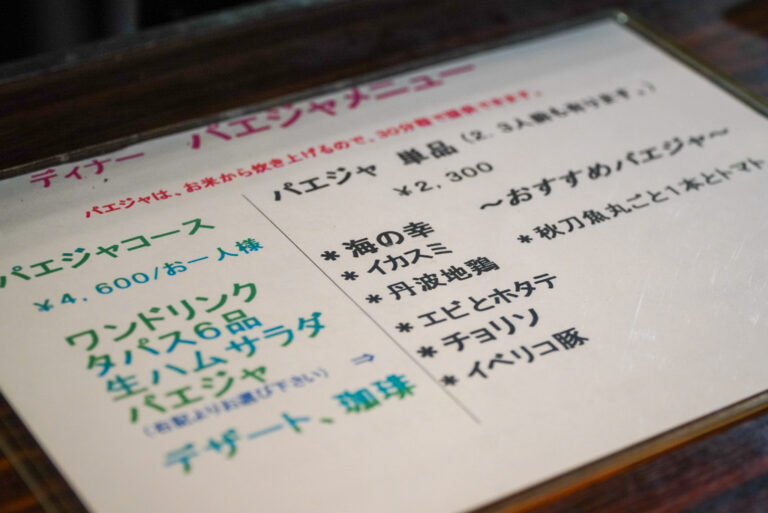 ディナー パエジャメニュー
パエジャは、お米から炊き上げるので、30分程で提供できます。
パエジャコース
¥4,600/お一人様
ワンドリンク
タパス6品
生ハムサラダ
パエジャ
(右記よりお選び下さい) ⇒
デザート、珈琲
パエジャ 単品(2、3人前も有ります。)
¥2,300
～おすすめパエジャ～
*海の幸
*秋刀魚丸ごと1本とトマト
*イカスミ
*丹波地鶏
*エビとホタテ
*チョリソ
*イベリコ豚